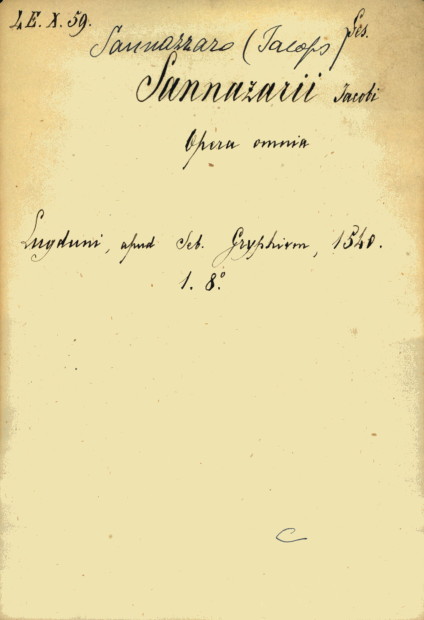 LE. X. 59.
Sannazzaro (Jacopo)
Sannazarii Jacobi
Opera omnia
Lugduni, apud Seb. Gryphium, 1540.
1. 8º
C